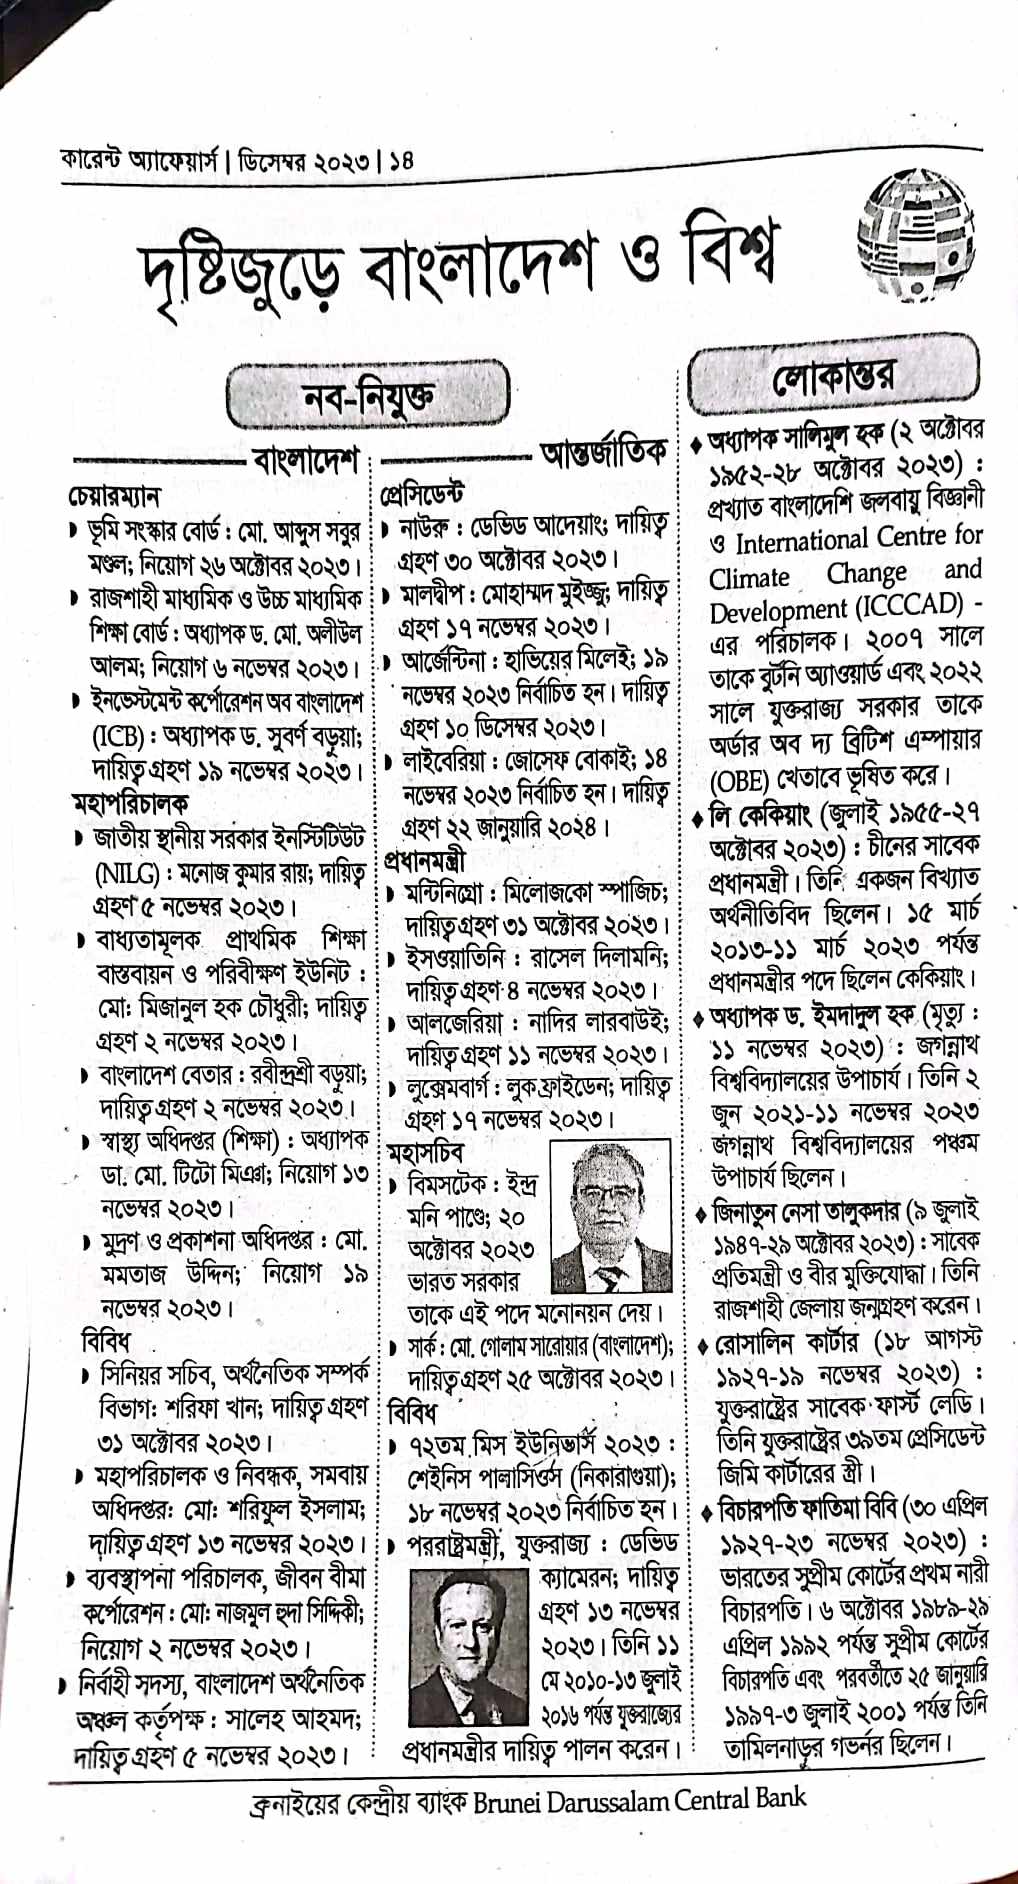 কারেন্ট অ্যাফেয়ার্স | ডিসেম্বর ২০২৩ | ১৪
দৃষ্টিজুড়ে বাংলাদেশ ও বিশ্ব
নব-নিযুক্ত
বাংলাদেশ
চেয়ারম্যান
ভূমি সংস্কার বোর্ড : মো. আব্দুস সবুর
মণ্ডল; নিয়োগ ২৬ অক্টোবর ২০২৩।
রাজশাহী মাধ্যমিক ও উচ্চ মাধ্যমিক
শিক্ষা বোর্ড : অধ্যাপক ড. মো. অলীউল
আলম; নিয়োগ ৬ নভেম্বর ২০২৩।
ইনভেস্টমেন্ট কর্পোরেশন অব বাংলাদেশ
(ICB) : অধ্যাপক ড. সুবর্ণ বড়ুয়া;
দায়িত্ব গ্রহণ ১৯ নভেম্বর ২০২৩।
মহাপরিচালক
জাতীয় স্থানীয় সরকার ইনস্টিটিউট
(NILG) : মনোজ কুমার রায়; দায়িত্ব
গ্রহণ ৫ নভেম্বর ২০২৩।
বাধ্যতামূলক প্রাথমিক শিক্ষা
বাস্তবায়ন ও পরিবীক্ষণ ইউনিট :
মো: মিজানুল হক চৌধুরী; দায়িত্ব
গ্রহণ ২ নভেম্বর ২০২৩।
বাংলাদেশ বেতার : রবীন্দ্রশ্রী বড়ুয়া;
দায়িত্ব গ্রহণ ২ নভেম্বর ২০২৩।
স্বাস্থ্য অধিদপ্তর (শিক্ষা) : অধ্যাপক
ডা. মো. টিটো মিঞা; নিয়োগ ১৩
নভেম্বর ২০২৩।
মুদ্রণ ও প্রকাশনা অধিদপ্তর : মো.
মমতাজ উদ্দিন; নিয়োগ ১৯
নভেম্বর ২০২৩।
বিবিধ
সিনিয়র সচিব, অর্থনৈতিক সম্পর্ক
বিভাগ: শরিফা খান; দায়িত্ব গ্রহণ
৩১ অক্টোবর ২০২৩।
মহাপরিচালক ও নিবন্ধক, সমবায়
অধিদপ্তর: মো: শরিফুল ইসলাম;
দায়িত্ব গ্রহণ ১৩ নভেম্বর ২০২৩।
ব্যবস্থাপনা পরিচালক, জীবন বীমা
কর্পোরেশন : মো: নাজমুল হুদা সিদ্দিকী;
নিয়োগ ২ নভেম্বর ২০২৩।
নির্বাহী সদস্য, বাংলাদেশ অর্থনৈতিক
অঞ্চল কর্তৃপক্ষ : সালেহ আহমদ;
দায়িত্ব গ্রহণ ৫ নভেম্বর ২০২৩।
আন্তর্জাতিক
প্রেসিডেন্ট
নাউরু : ডেভিড আদেয়াং; দায়িত্ব
গ্রহণ ৩০ অক্টোবর ২০২৩।
মালদ্বীপ : মোহাম্মদ মুইজ্জু; দায়িত্ব
গ্রহণ ১৭ নভেম্বর ২০২৩।
আর্জেন্টিনা : হাভিয়ের মিলেই; ১৯
নভেম্বর ২০২৩ নির্বাচিত হন। দায়িত্ব
গ্রহণ ১০ ডিসেম্বর ২০২৩।
লাইবেরিয়া : জোসেফ বোকাই; ১৪
নভেম্বর ২০২৩ নির্বাচিত হন। দায়িত্ব
গ্রহণ ২২ জানুয়ারি ২০২৪।
প্রধানমন্ত্রী
মন্টিনিগ্রো : মিলোজকো স্পাজিচ;
দায়িত্ব গ্রহণ ৩১ অক্টোবর ২০২৩।
ইসওয়াতিনি : রাসেল দিলামনি;
দায়িত্ব গ্রহণ ৪ নভেম্বর ২০২৩।
আলজেরিয়া : নাদির লারবাউই;
দায়িত্ব গ্রহণ ১১ নভেম্বর ২০২৩।
লুক্সেমবার্গ : লুক ফ্রাইডেন; দায়িত্ব
গ্রহণ ১৭ নভেম্বর ২০২৩।
মহাসচিব
বিমসটেক : ইন্দ্র
মনি পাণ্ডে; ২০
অক্টোবর ২০২৩
ভারত সরকার
তাকে এই পদে মনোনয়ন দেয়।
সার্ক : মো. গোলাম সারোয়ার (বাংলাদেশ);
দায়িত্ব গ্রহণ ২৫ অক্টোবর ২০২৩।
বিবিধ
৭২তম মিস ইউনিভার্স ২০২৩ :
শেইনিস পালাসিওস (নিকারাগুয়া);
১৮ নভেম্বর ২০২৩ নির্বাচিত হন।
পররাষ্ট্রমন্ত্রী, যুক্তরাজ্য : ডেভিড
ক্যামেরন; দায়িত্ব
গ্রহণ ১৩ নভেম্বর
২০২৩। তিনি ১১
মে ২০১০-১৩ জুলাই
২০১৬ পর্যন্ত যুক্তরাজ্যের
প্রধানমন্ত্রীর দায়িত্ব পালন করেন।
লোকান্তর
অধ্যাপক সালিমুল হক (২ অক্টোবর
১৯৫২-২৮ অক্টোবর ২০২৩) :
প্রখ্যাত বাংলাদেশি জলবায়ু বিজ্ঞানী
ও International Centre for
Climate Change and
Development (ICCCAD) -
এর পরিচালক। ২০০৭ সালে
তাকে বুর্টনি অ্যাওয়ার্ড এবং ২০২২
সালে যুক্তরাজ্য সরকার তাকে
অর্ডার অব দ্য ব্রিটিশ এম্পায়ার
(OBE) খেতাবে ভূষিত করে।
লি কেকিয়াং (জুলাই ১৯৫৫-২৭
অক্টোবর ২০২৩) : চীনের সাবেক
প্রধানমন্ত্রী। তিনি একজন বিখ্যাত
অর্থনীতিবিদ ছিলেন। ১৫ মার্চ
২০১৩-১১ মার্চ ২০২৩ পর্যন্ত
প্রধানমন্ত্রীর পদে ছিলেন কেকিয়াং।
অধ্যাপক ড. ইমদাদুল হক (মৃত্যু :
১১ নভেম্বর ২০২৩) : জগন্নাথ
বিশ্ববিদ্যালয়ের উপাচার্য। তিনি ২
জুন ২০২১-১১ নভেম্বর ২০২৩
জগন্নাথ বিশ্ববিদ্যালয়ের পঞ্চম
উপাচার্য ছিলেন।
জিনাতুন নেসা তালুকদার (৯ জুলাই
১৯৪৭-২৯ অক্টোবর ২০২৩) : সাবেক
প্রতিমন্ত্রী ও বীর মুক্তিযোদ্ধা। তিনি
রাজশাহী জেলায় জন্মগ্রহণ করেন।
রোসালিন কার্টার (১৮ আগস্ট
১৯২৭-১৯ নভেম্বর ২০২৩) :
যুক্তরাষ্ট্রের সাবেক ফার্স্ট লেডি।
তিনি যুক্তরাষ্ট্রের ৩৯তম প্রেসিডেন্ট
জিমি কার্টারের স্ত্রী।
বিচারপতি ফাতিমা বিবি (৩০ এপ্রিল
১৯২৭-২৩ নভেম্বর ২০২৩) :
ভারতের সুপ্রীম কোর্টের প্রথম নারী
বিচারপতি। ৬ অক্টোবর ১৯৮৯-২৯
এপ্রিল ১৯৯২ পর্যন্ত সুপ্রীম কোর্টের
বিচারপতি এবং পরবর্তীতে ২৫ জানুয়ারি
১৯৯৭-৩ জুলাই ২০০১ পর্যন্ত তিনি
তামিলনাড়ুর গভর্নর ছিলেন।
ব্রুনাইয়ের কেন্দ্রীয় ব্যাংক Brunei Darussalam Central Bank